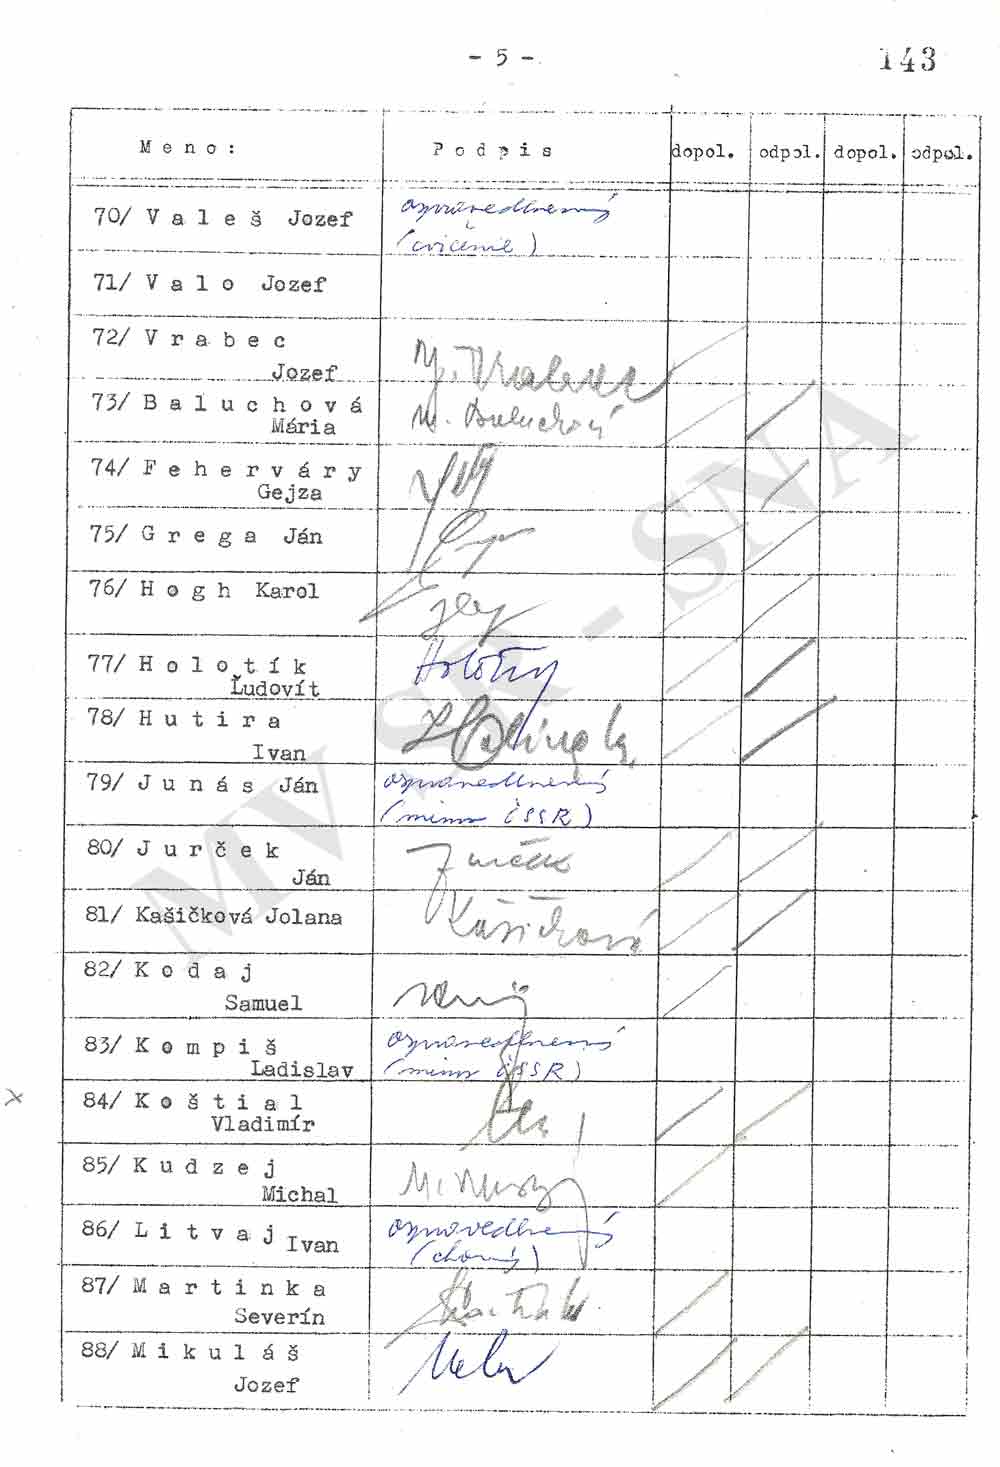 - 5 -
143
Meno: Podpis dopol. odpol. dopol. odpol.
70/ Valeš Jozef ospravedlnený
(cvičenie)
71/ Valo Jozef
72/ Vrabec
Jozef J. Vrabec
73/ Baluchová M. Baluchová
Mária
74/ Feherváry
Gejza
75/ Grega Ján
76/ Hogh Karol
77/ Holotík Holotík
Ľudovít
78/ Hutira
Ivan
79/ Junás Ján ospravedlnený
(mimo ČSSR)
80/ Jurček Jurček
Ján
81/ Kašičková Jolana Kašičková
82/ Kodaj
Samuel
83/ Kompiš ospravedlnený
Ladislav (mimo ČSSR)
x
84/ Koštial
Vladimír
85/ Kudzej
Michal
86/ Litvaj ospravedlnený
Ivan (chorý)
87/ Martinka
Severín
88/ Mikuláš
Jozef
MV SR - SNA